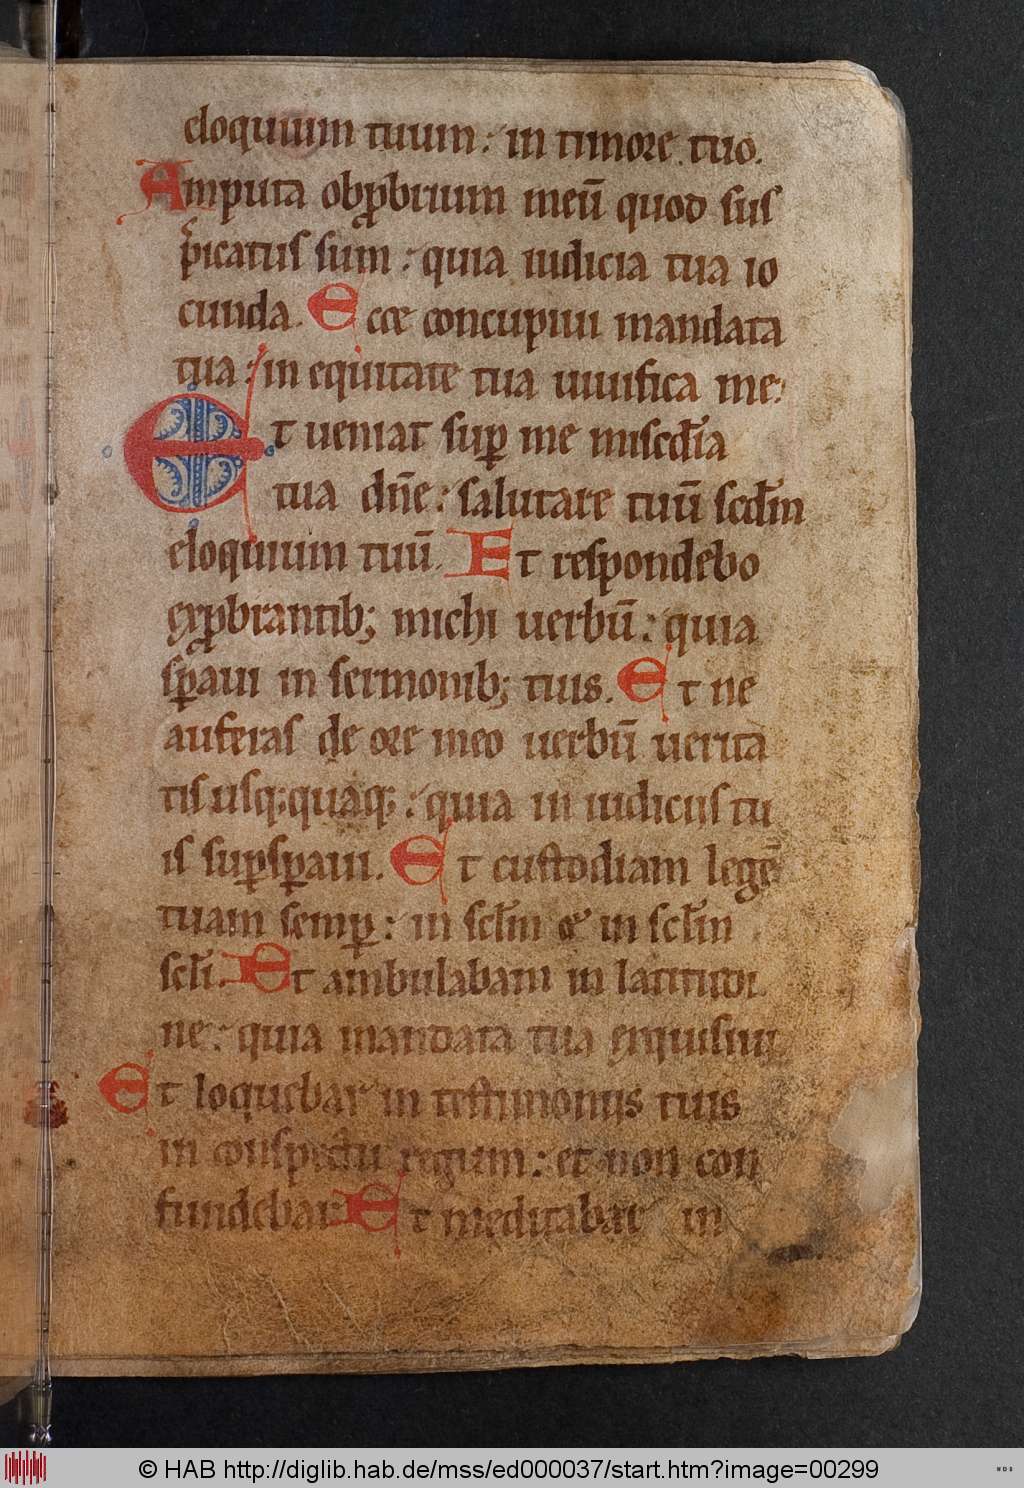 eloquium tuum: in timore tuo.
Amputa obꝓbrium meū quod sus
p̄icatus sum: quia iudicia tua io
cunda. Ecce concupiui mandata
tua: in equitate tua uiuifica me:
Et ueniat suꝑ me misc̄dia
tua dn̄e: salutare tuū scd̄m
eloquium tuū. Et respondebo
exꝓbrantib; michi uerbū: quia
sꝑaui in sermonib; tuis. Et ne
auferas de ore meo uerbū uerita
tis usq;quaq;: quia in iudiciis tu
is suꝑsꝑaui. Et custodiam legē
tuam semꝑ: in scl̄m et in scl̄m
scl̄i. Et ambulabam in latitudi
ne: quia mandata tua exquisiui
Et loquebar in testimoniis tuis
in conspectu regum: et non con
fundebar Et meditabar in
© HAB http://diglib.hab.de/mss/ed000037/start.htm?image=00299